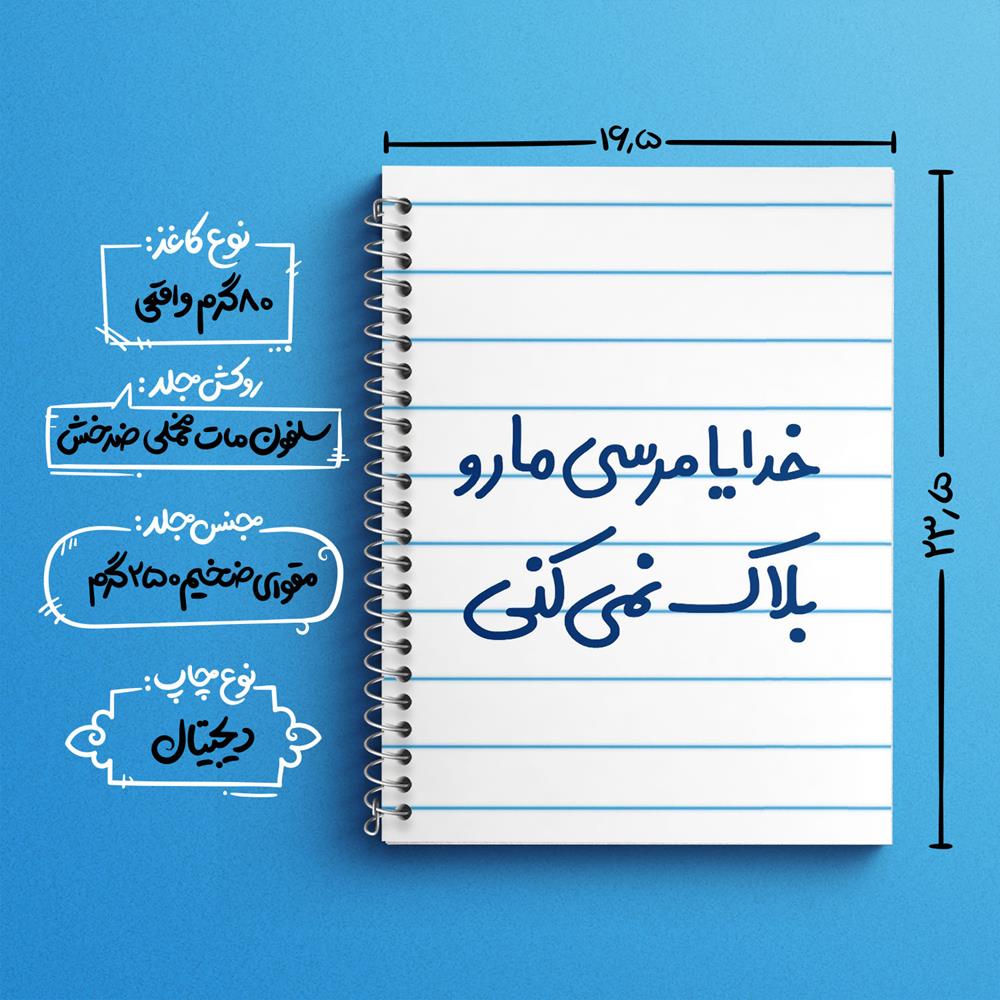 ۱۶٫۵
۲۳٫۵
نوع کاغذ:
۸۰ گرم واقعی
روکش جلد:
سلفون مات مخملی ضدخش
جنس جلد:
مقوای ضخیم ۲۵۰ گرم
نوع چاپ:
دیجیتال
خدایا مرسی مارو
بلاک نمی کنی